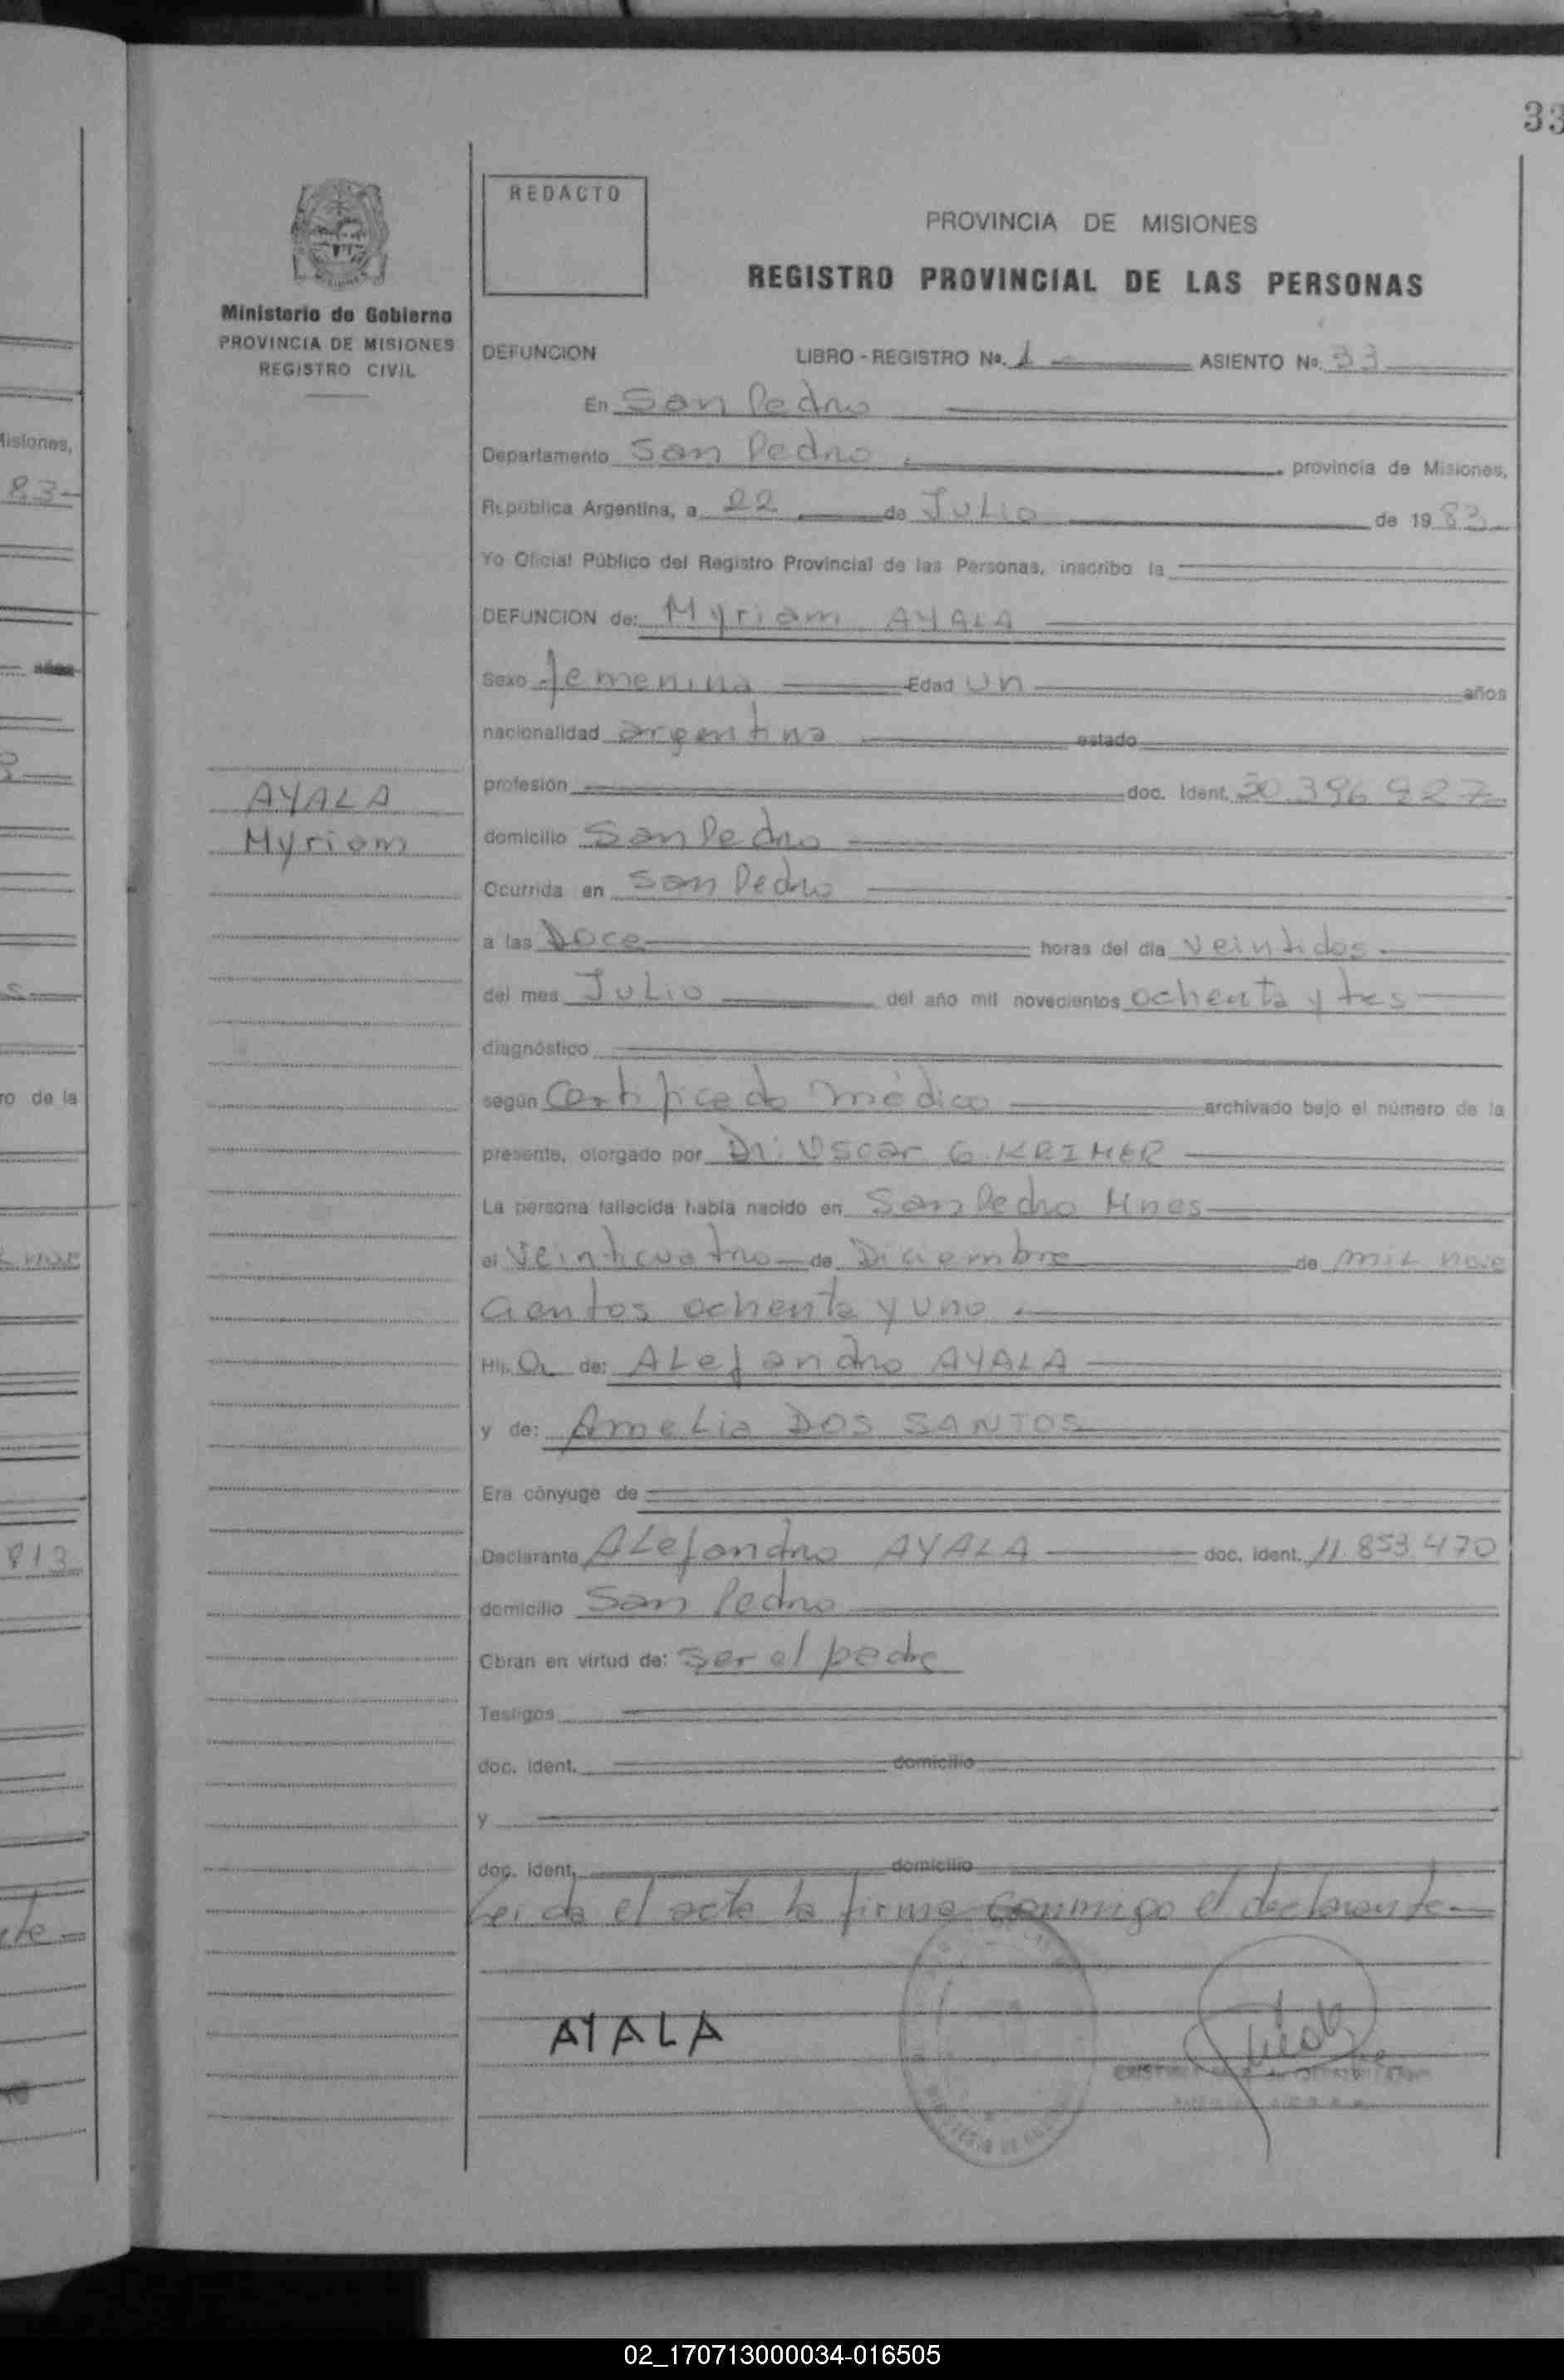 33
REDACTO
PROVINCIA DE MISIONES
REGISTRO PROVINCIAL DE LAS PERSONAS
Ministerio de Gobierno
PROVINCIA DE MISIONES
REGISTRO CIVIL
DEFUNCION LIBRO - REGISTRO No. 1 ASIENTO No. 33
En San Pedro
Departamento San Pedro provincia de Misiones,
República Argentina, a 22 de Julio de 1983
Yo Oficial Público del Registro Provincial de las Personas, inscribo la
DEFUNCION de: Myriam AYALA
Sexo femenina Edad un años
nacionalidad argentina estado
profesión doc. Ident. 30.396.927
AYALA
Myriam
domicilio San Pedro
Ocurrida en San Pedro
a las Doce horas del día veintidos
del mes Julio del año mil novecientos ochenta y tres
diagnóstico
según Certificado médico archivado bajo el número de la
presente, otorgado por Dr. Oscar G. KRIMER
La persona fallecida había nacido en San Pedro Mnes
el veinticuatro de Diciembre de mil nove
cientos ochenta y uno
Hij a de: Alejandro AYALA
y de: Amelia DOS SANTOS
Era cónyuge de
Declarante Alejandro AYALA doc. ident. 11.853.470
domicilio San Pedro
Obran en virtud de: ser el padre
Testigos
doc. ident. domicilio
y
doc. ident. domicilio
Leida el acta la firma conmigo el declarante
AYALA
Misiones,
83
ro de la
813
02_170713000034-016505